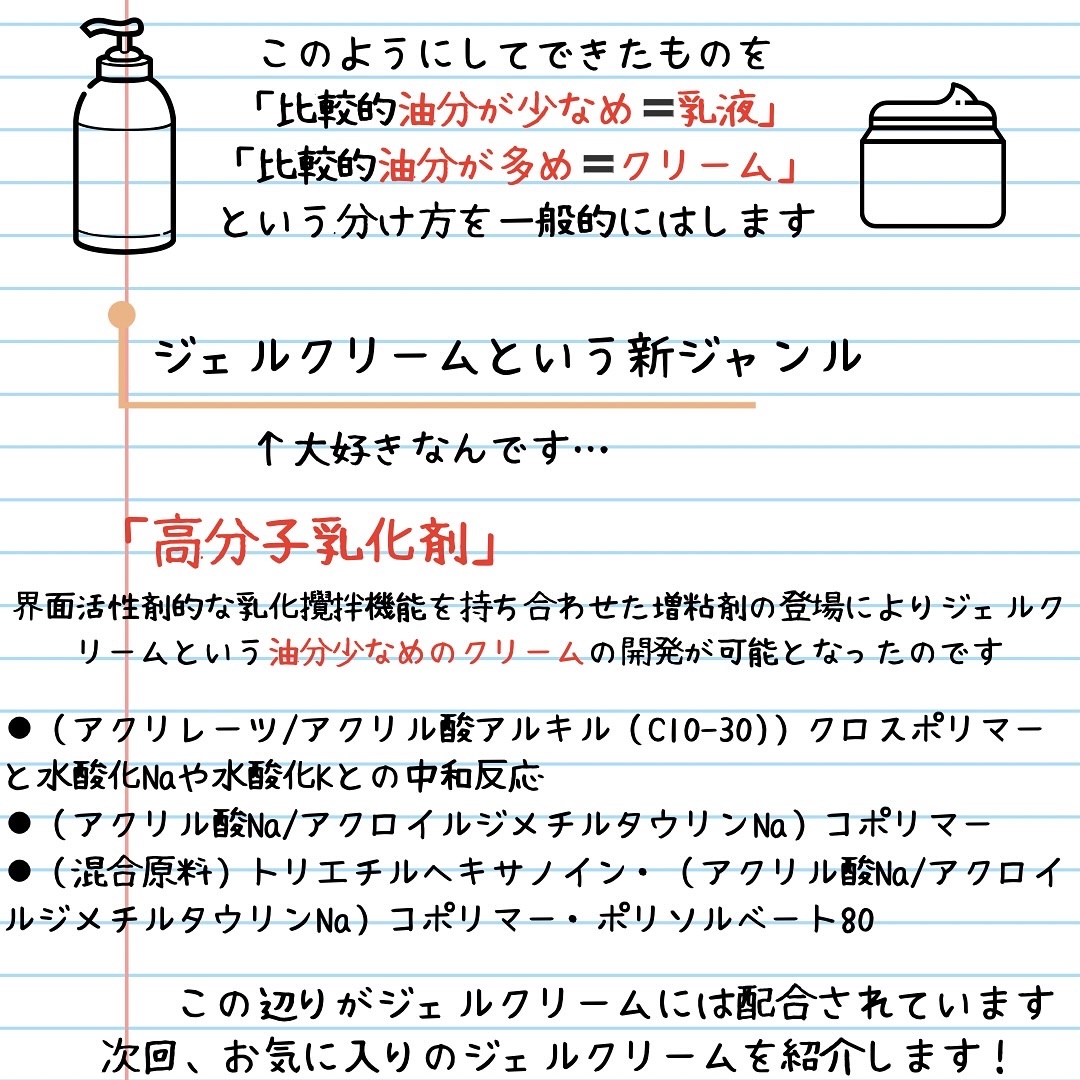 このようにしてできたものを
「比較的油分が少なめ＝乳液」
「比較的油分が多め＝クリーム」
という分け方を一般的にはします
ジェルクリームという新ジャンル
↑大好きなんです…
「高分子乳化剤」
界面活性剤的な乳化攪拌機能を持ち合わせた増粘剤の登場によりジェルク
リームという油分少なめのクリームの開発が可能となったのです
●（アクリレーツ/アクリル酸アルキル（C10-30））クロスポリマー
と水酸化Naや水酸化Kとの中和反応
●（アクリル酸Na/アクロイルジメチルタウリンNa）コポリマー
●（混合原料）トリエチルヘキサノイン・（アクリル酸Na/アクロイ
ルジメチルタウリンNa）コポリマー・ポリソルベート80
この辺りがジェルクリームには配合されています
次回、お気に入りのジェルクリームを紹介します！